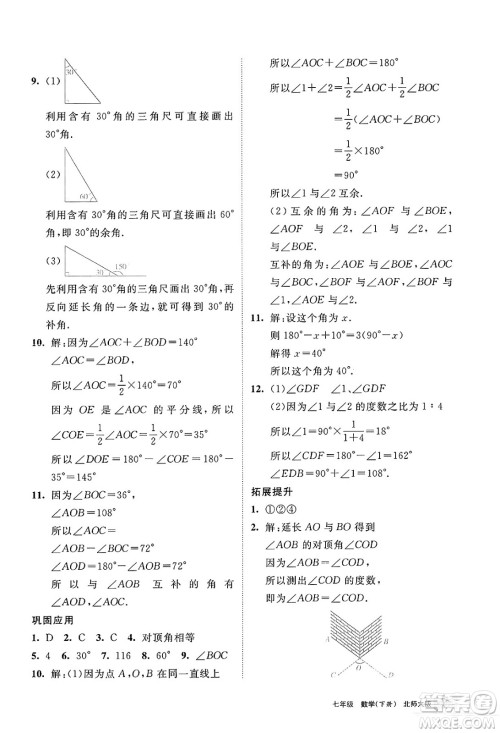 9. (1)
30°
利用含有 30°角的三角尺可直接画出
30°角.
(2)
60°
利用含有 30°角的三角尺直接画出 60°
角,即 30°的余角.
(3)
30° 150°
先利用含有 30°角的三角尺画 30°角,再
反向延长角的一条边,就可以得到 30°的
补角.
10. 解:因为∠AOC+∠BOD=140°
∠AOC=∠BOD,
所以∠AOC=1/2×140°=70°
因为 OE 是∠AOC 的平分线,所以
∠COE=1/2∠AOC=1/2×70°=35°
所以∠DOE=180°-∠COE=145°
11. 因为∠BOC=36°,
∠AOB=108°
所以∠AOC=
∠AOB-∠BOC=72°
∠BOD=180°-∠AOB=72°
所以与∠AOB 互补的角有∠AOC
和∠BOD.
巩固应用
1. D 2. C 3. C 4. 对顶角相等
5. 4 6. 30° 7. 110° 8. 60° 9. 115°
10. 解:(1)因为点 A,O,B 在同一直线上
所以∠AOC+∠BOC=180°
所以∠1+∠2=1/2∠AOC+1/2∠BOC
=1/2×180°
=90°
所以∠1 与∠2 互余.
(2)互余的角为:∠AOF 与∠BOE,
∠AOF 与∠EOC,∠COF 与∠BOE,
∠COF 与∠EOC.
互补的角为:∠AOF 与∠BOF,∠AOC
与∠BOC,∠COF 与∠BOF,∠BOE
与∠AOE,∠COE 与∠AOE.
11. 解:设这个角为 x.
则 180°-x+10°=3(90°-x)
解得 x=40°
所以这个角为 40°.
12. (1)∠GDF ∠1、∠GDF
(2)因为∠1 与∠2 的度数之比为 1∶4
所以∠1=90°×1/(1+4)=18°
所以∠CDF=180°-∠1=162°
∠EDB=90°+∠1=108°
拓展提升
1. ①②④
2. 解:延长 AO 与 BO 获得
∠AOB 的对顶角∠COD
因为∠AOB=∠COD
所以测出∠COD 的度数,
即为∠AOB 的度数.
A
B
O
C
D
七年级 数学(下册) 北师大版